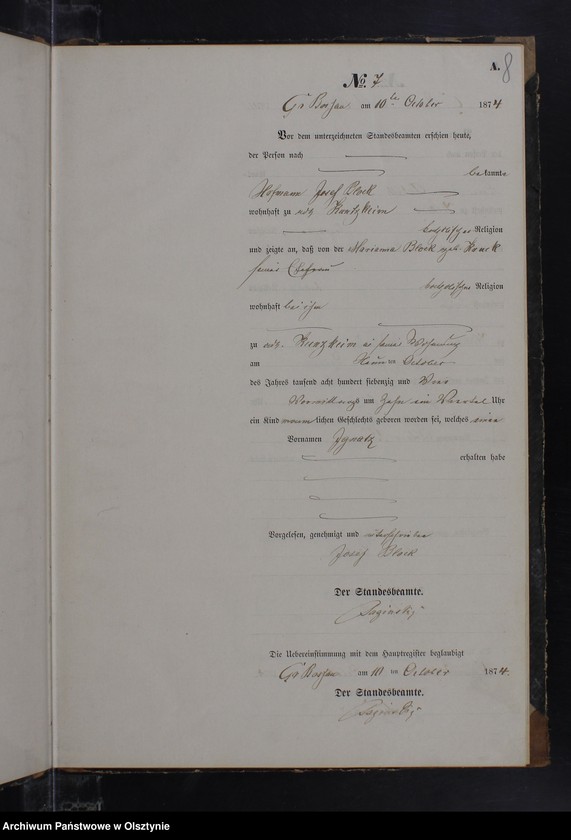 A. 8
No. 7
Gr Bössau am 10ten October 1874
Vor dem unterzeichneten Standesbeamten erschien heute,
der Person nach
bekannte
Hofmann Josef Block
wohnhaft zu adl.
katholischer Religion
und zeigte an, daß von der Marianna Block geb.
seiner Ehefrau
katholischer Religion
wohnhaft bei ihm
zu adl. in seiner Wohnung
am October
des Jahres tausend acht hundert siebenzig und Vier
Vormittags um Zehn ein Viertel Uhr
ein Kind männlichen Geschlechts geboren worden sei, welches einen
Vornamen Ignatz
erhalten habe
Vorgelesen, genehmigt und unterschrieben
Josef Block
Der Standesbeamte.
Die Uebereinstimmung mit dem Hauptregister beglaubigt
Gr Bössau am 10 ten October 1874.
Der Standesbeamte.
Archiwum Państwowe w Olsztynie